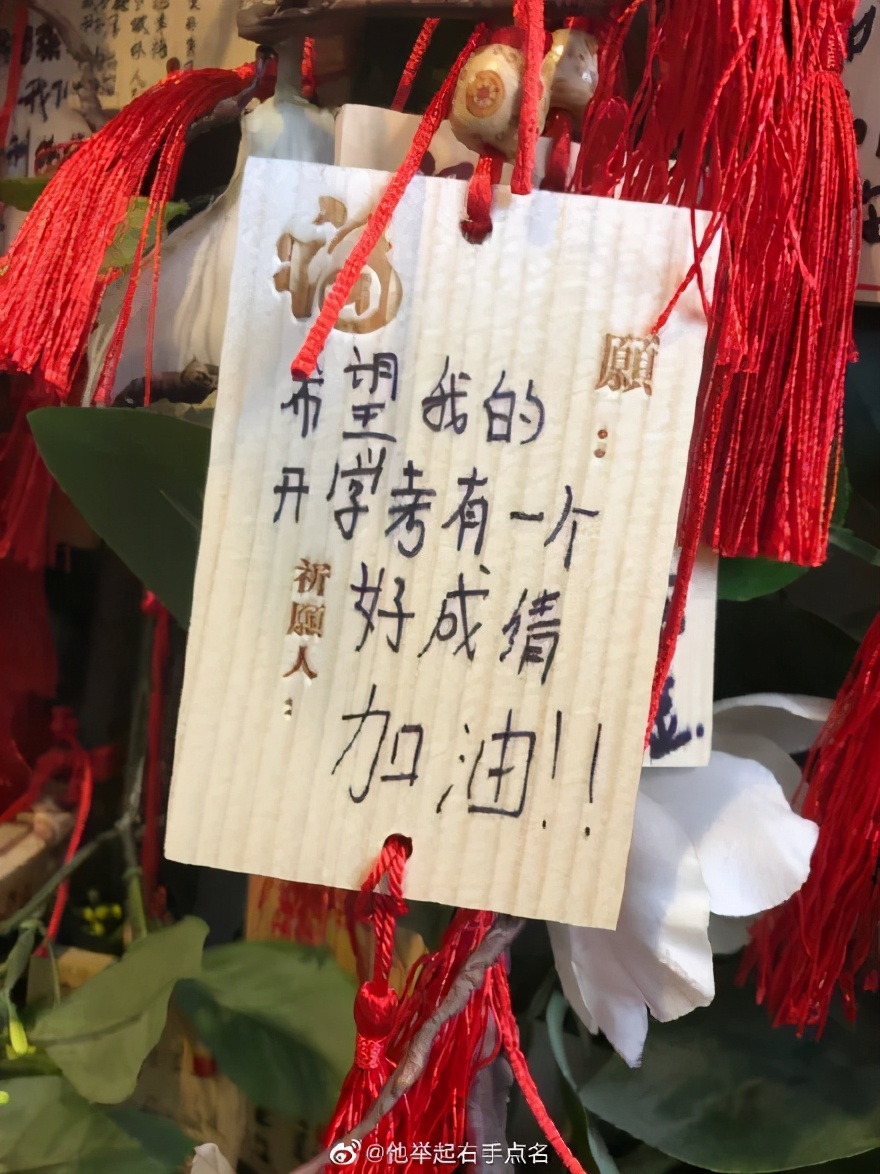 福
願：
希望我的
开学考有一个
好成绩
加油!!
祈願人：
@他举起右手点名